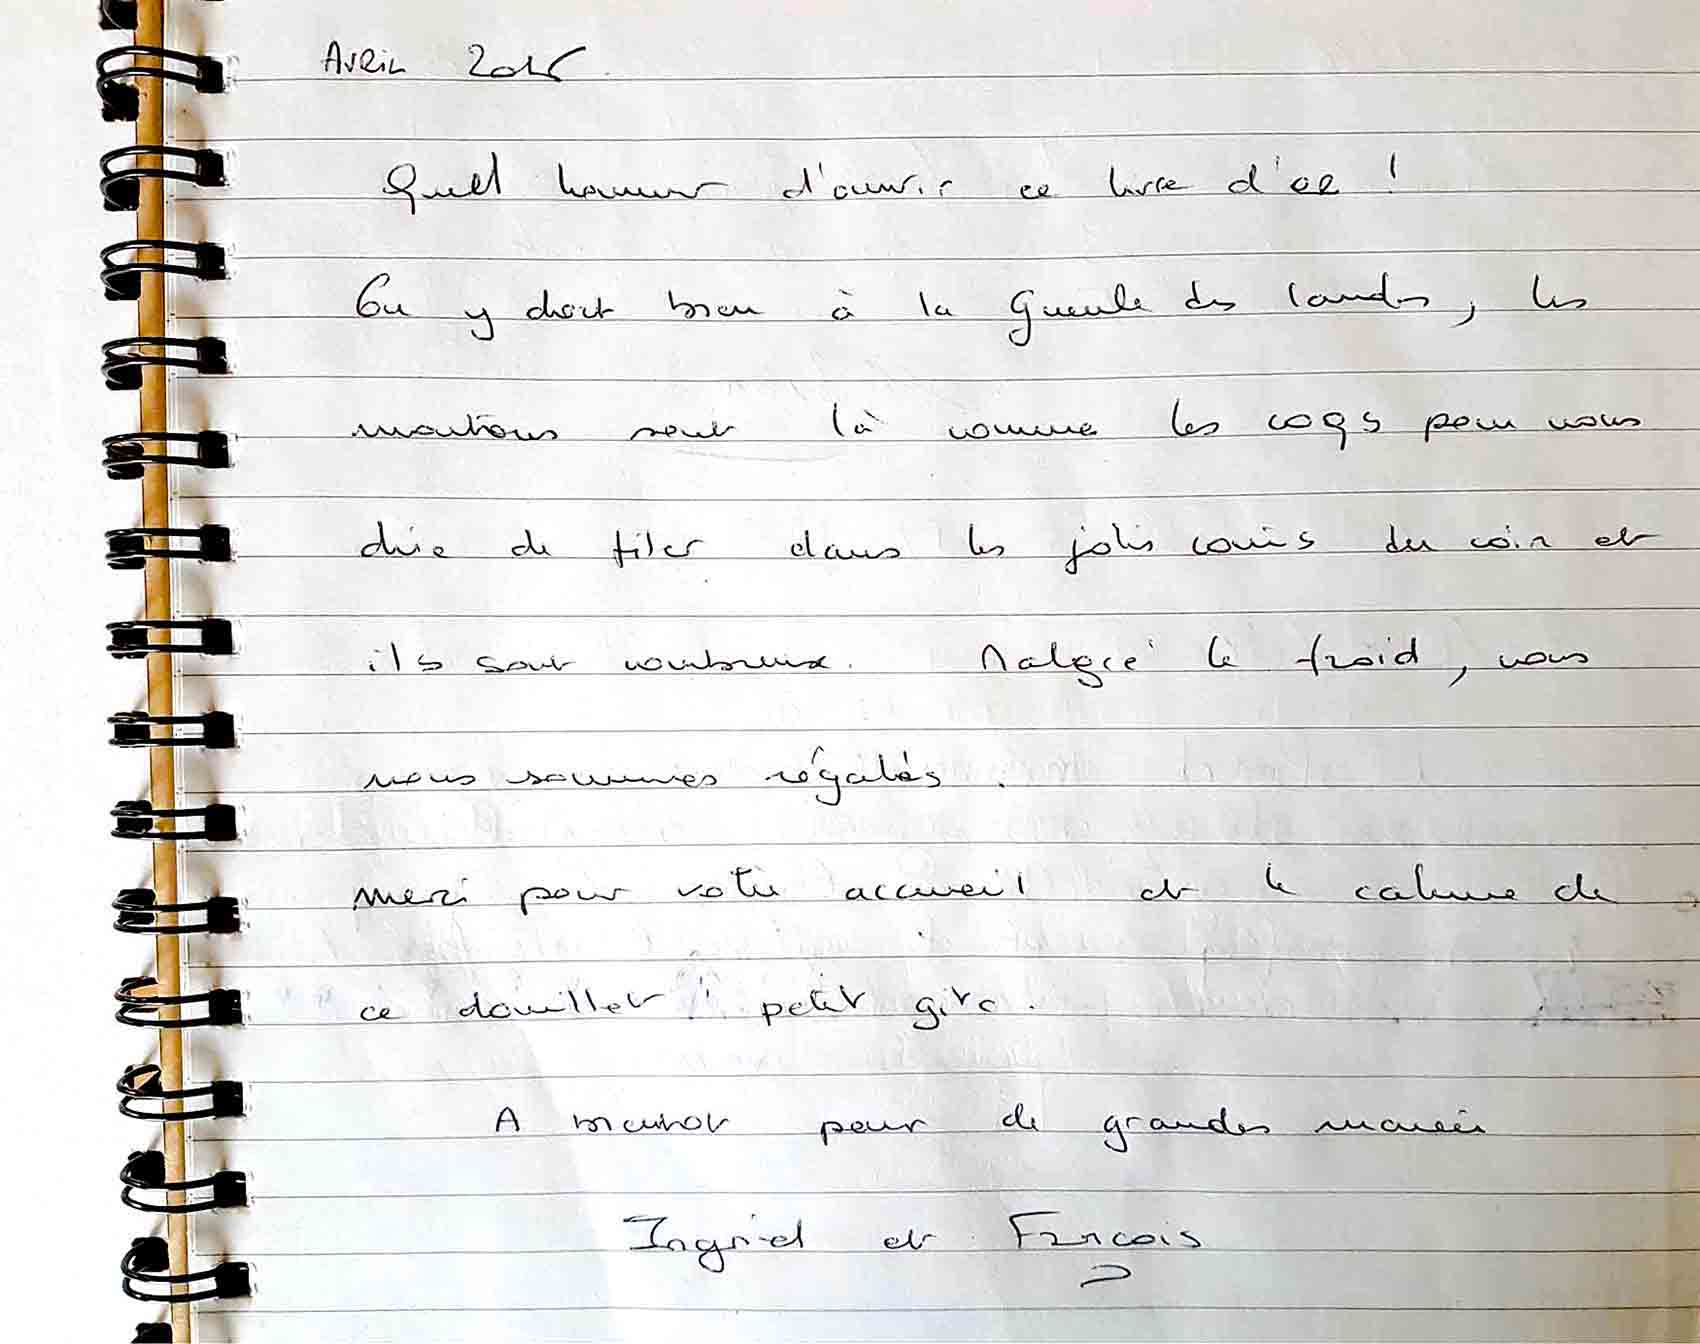 Avril 2016
Quel honneur d'ouvrir ce livre d'or !
On y dort bien à la Gueule des landes, les
moutons sont là comme les coqs pour nous
dire de filer dans les jolis coins du coin et
ils sont nombreux. Malgré le froid, nous
nous sommes régalés.
Merci pour votre accueil et le calme de
ce douillet petit gite.
A bientot pour de grandes marées
Ingrid et François